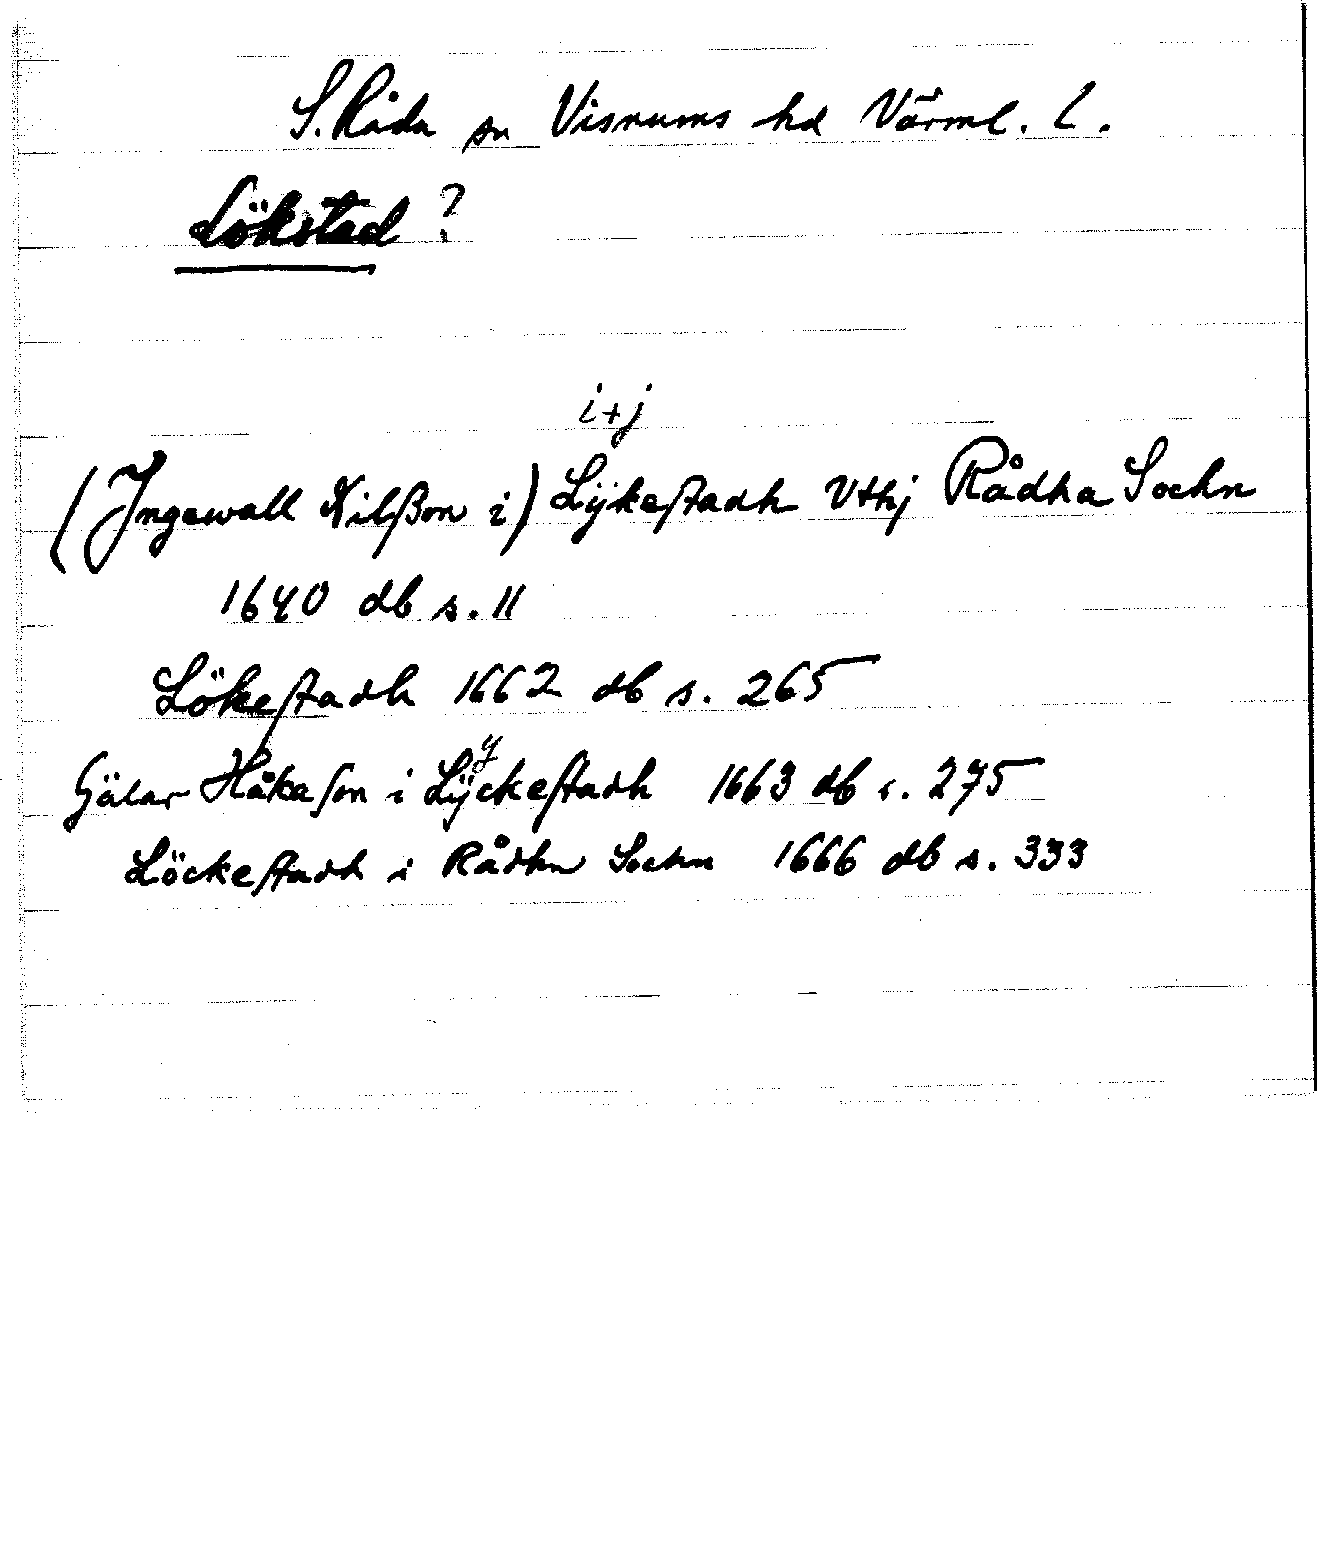 S. Råda sn Visnums hd Värml. l.
Lökstad ?
i+j
(Ingewall Nilßon i) Lijkestadh Vthj Rådha Sochn
1640 db s. 11
Lökestadh 1662 db s. 265
y
Håkason i Lÿckestadh 1663 db s. 275
Löckestadh i Rådhn Sochn 1666 db s. 333